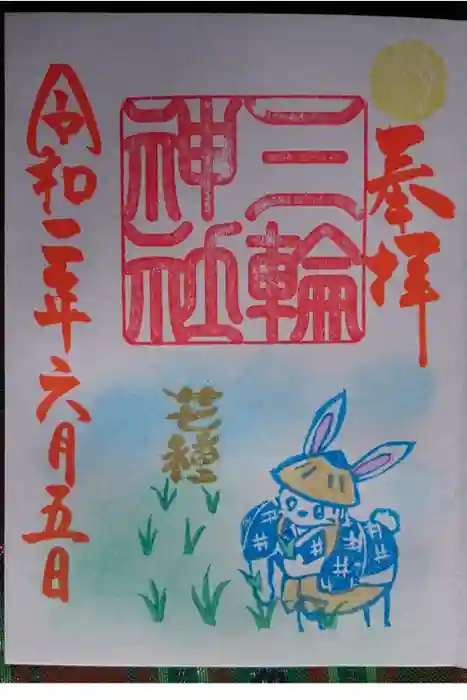 奉拝
三輪
神社
芒種
令和三年六月五日